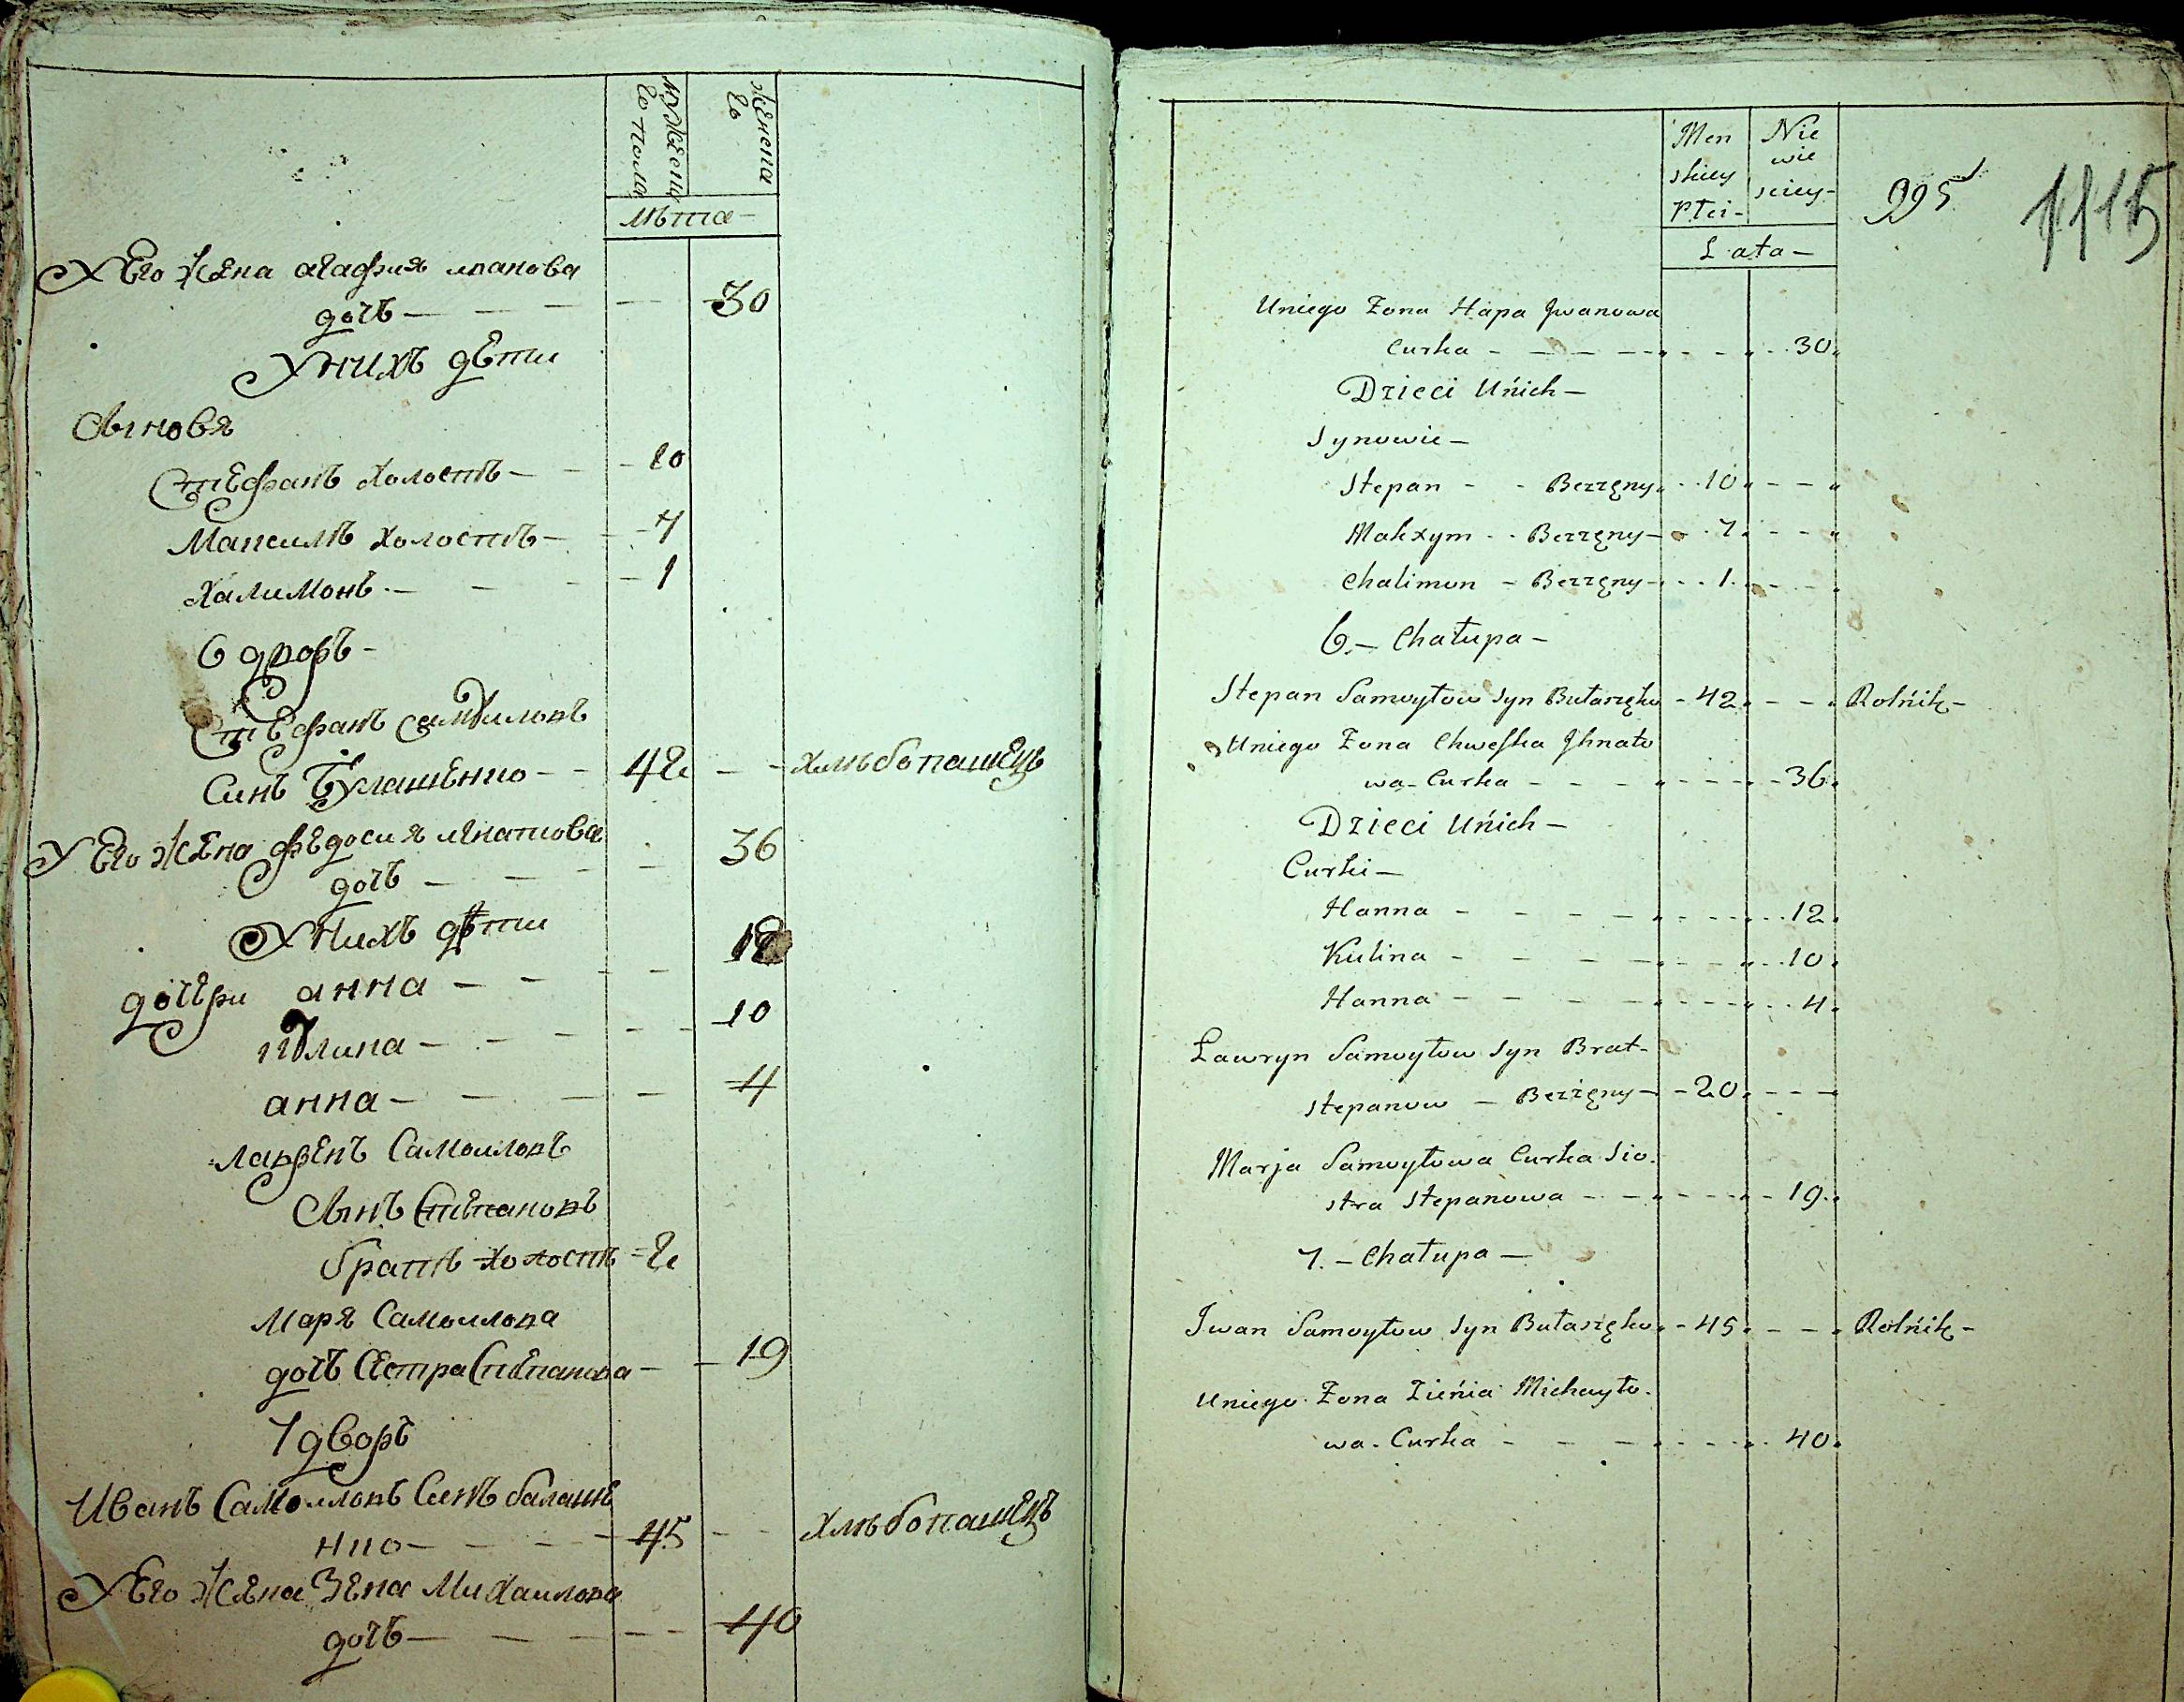 мужеска
го пола
женска
го
лѣта —
У Его жена агафия иванова
дочь — — — — 30
У нихъ дѣти
Сынове
Стефанъ холостъ — — 10
Максимъ холостъ — 7
Халимонъ — — — 1
6 дворъ —
Стефанъ Самуиловъ
Синъ Булашенко — — 42 — — хлѣбопашецъ
У Его жена федосия игнатова
дочь — — — — 36
У нихъ дѣти
дочери анна — — — 12
кулина — — — — — 10
анна — — — — 4
лаврѣнъ Самоиловъ
Сынъ Степановъ
братъ холостъ — 2
Маря Самоилова
дочь Сестра Степанова — — 19
7 дворъ
Иванъ Самоиловъ Синъ балаше
нко — — — — 45 — — хлѣбопашецъ
У Его жена Зена Михаилова
дочь — — — — — 40
Men
skiey
Płci —
Nie
wie
sciey —
Lata —
995
1115
Uniego Żona Hapa Jwanowa
Curka — — — — 30
Dzieci Unich —
Synowie —
Stepan - - Bezzęny 10 — —
Makxym - - Bezzęny — 7 — —
Chalimon — Bezzęny — 1 — —
6. — Chałupa —
Stepan Samoyłow Syn Bułaszęko — 42 — — Rolnik —
Uniego Żona Chweska Jhnato
wa - Curka — — — — 36
Dzieci Unich —
Curki —
Hanna — — — — 12
Kulina — — — — 10
Hanna — — — — 4
Ławryn Samoyłow Syn Brat -
Stepanow — Bezżęny — 20 — —
Marja Samoyłowa Curka Sio -
stra Stepanowa — — — — 19
7. — Chałupa —
Iwan Samoyłow Syn Bułaszęko — 45 — — Rolnik —
Uniego Żona Zieńia Michayło -
wa - Curka — — — — 40